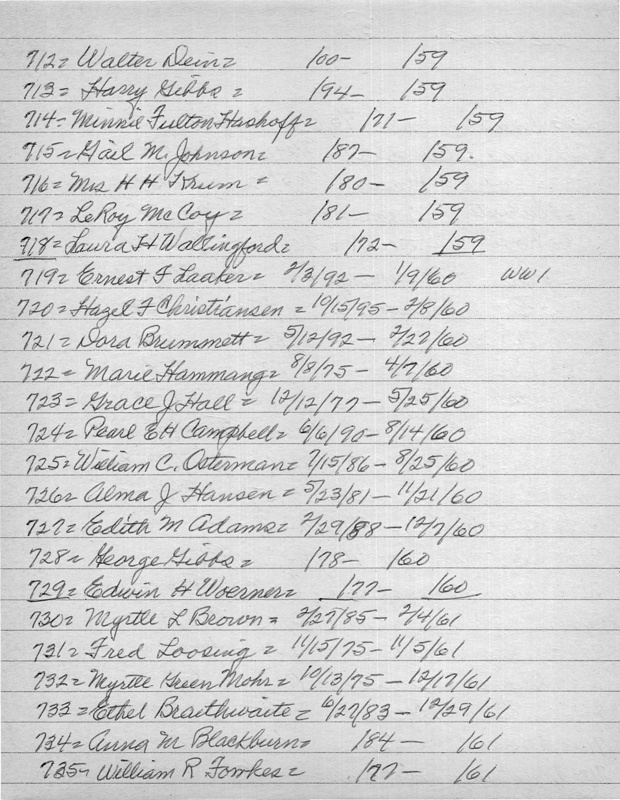 712= Walter Dein= /00- /59
713= Harry Gibbs = /94- /59
714= Minnie Fulton Hashoff= /71- /59
715= Gail M. Johnson= /87- /59.
716= Mrs H H Krum = /80- /59
717= LeRoy McCoy= /81- /59
718= Laura H Wallingford= /72- /59
719= Ernest F Laaker= 2/3/92 - 1/9/60 WW1
720= Hazel F Christiansen = 10/15/95 - 2/8/60
721= Dora Brummett= 5/12/92 - 2/27/60
722= Marie Hammang= 8/8/75 - 4/7/60
723= Grace J Hall = 12/12/77 - 5/25/60
724= Pearl E H Campbell= 6/6/90 - 8/14/60
725= William C. Osterman= 7/15/86 - 8/25/60
726= Alma J Hansen = 5/23/81 - 11/21/60
727= Edith M Adams= 2/29/88 - 12/7/60
728= George Gibbs= /78- /60
729= Edwin H Woerner= /77- /60
730= Myrtle L Brown= 2/27/85 - 2/4/61
731= Fred Loosing = 11/15/75 - 11/5/61
732= Myrtle Green Mohr= 10/13/75 - 12/17/61
733= Ethel Braithwaite= 6/27/83 - 12/29/61
734= Anna M Blackburn= /84- /61
735= William R Fowkes= /77- /61